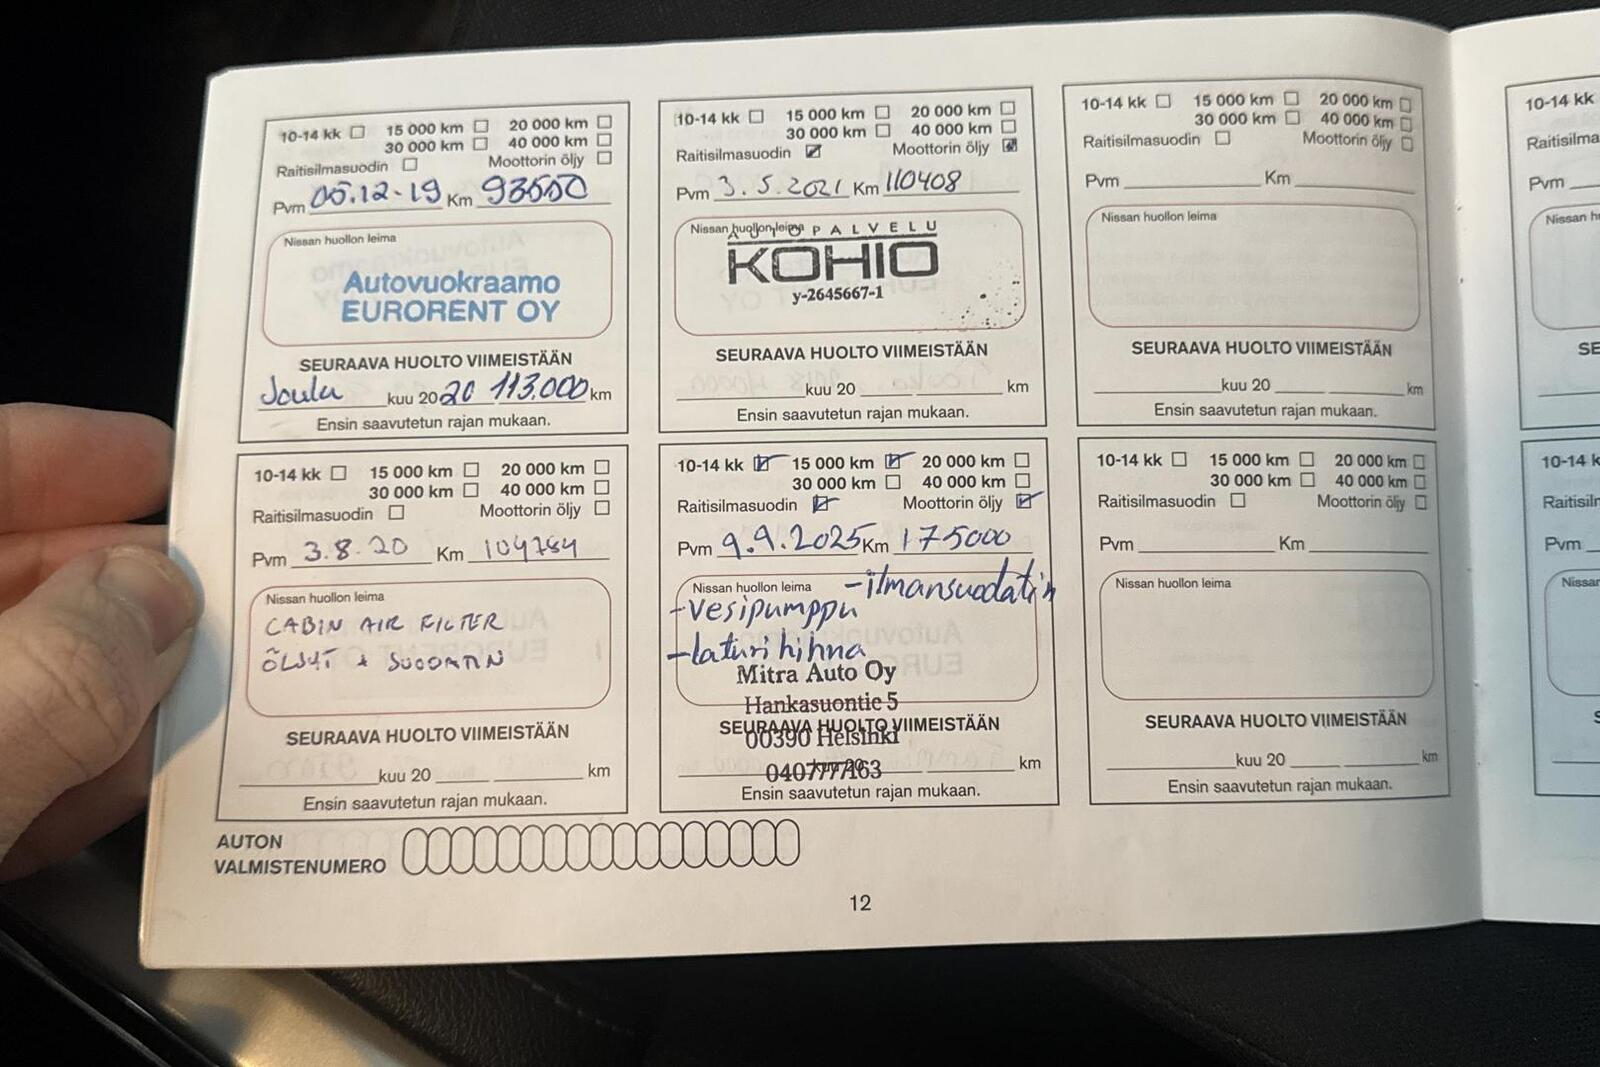 10-14 kk 15 000 km 20 000 km
30 000 km 40 000 km
Raitisilmasuodin Moottorin öljy
Pvm 05.12-19 Km 93550
Nissan huollon leima
Autovuokraamo
EURORENT OY
SEURAAVA HUOLTO VIIMEISTÄÄN
Joulu kuu 2020 113.000 km
Ensin saavutetun rajan mukaan.
10-14 kk 15 000 km 20 000 km
30 000 km 40 000 km
Raitisilmasuodin Moottorin öljy
Pvm 3.8.20 Km 104784
Nissan huollon leima
CABIN AIR FILTER
ÖLJYT + SUODATIN
SEURAAVA HUOLTO VIIMEISTÄÄN
kuu 20 km
Ensin saavutetun rajan mukaan.
10-14 kk 15 000 km 20 000 km
30 000 km 40 000 km
Raitisilmasuodin Moottorin öljy
Pvm 3.5.2021 Km 110408
Nissan huollon leima
AUTOPALVELU
KOHIO
y-2645667-1
SEURAAVA HUOLTO VIIMEISTÄÄN
kuu 20 km
Ensin saavutetun rajan mukaan.
10-14 kk 15 000 km 20 000 km
30 000 km 40 000 km
Raitisilmasuodin Moottorin öljy
Pvm 9.9.2025 Km 175000
Nissan huollon leima -ilmansuodatin
-vesipumppu
-laturi hihna
Mitra Auto Oy
Hankasuontie 5
SEURAAVA HUOLTO VIIMEISTÄÄN
00390 Helsinki
km
Ensin saavutetun rajan mukaan.
10-14 kk 15 000 km 20 000 km
30 000 km 40 000 km
Raitisilmasuodin Moottorin öljy
Pvm Km
Nissan huollon leima
SEURAAVA HUOLTO VIIMEISTÄÄN
kuu 20 km
Ensin saavutetun rajan mukaan.
10-14 kk 15 000 km 20 000 km
30 000 km 40 000 km
Raitisilmasuodin Moottorin öljy
Pvm Km
Nissan huollon leima
SEURAAVA HUOLTO VIIMEISTÄÄN
kuu 20 km
Ensin saavutetun rajan mukaan.
AUTON
VALMISTENUMERO
12
10-14 kk
Pvm
Pvm